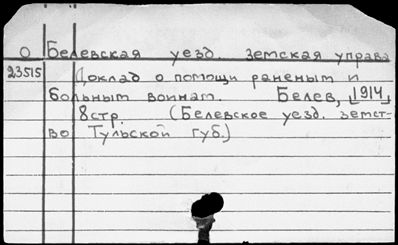 О Белевская уезд. земская управа
23515 Доклад о помощи раненым и
больным воинам. Белев, [1914]
8стр. (Белевское уезд. земст-
во Тульской губ.)